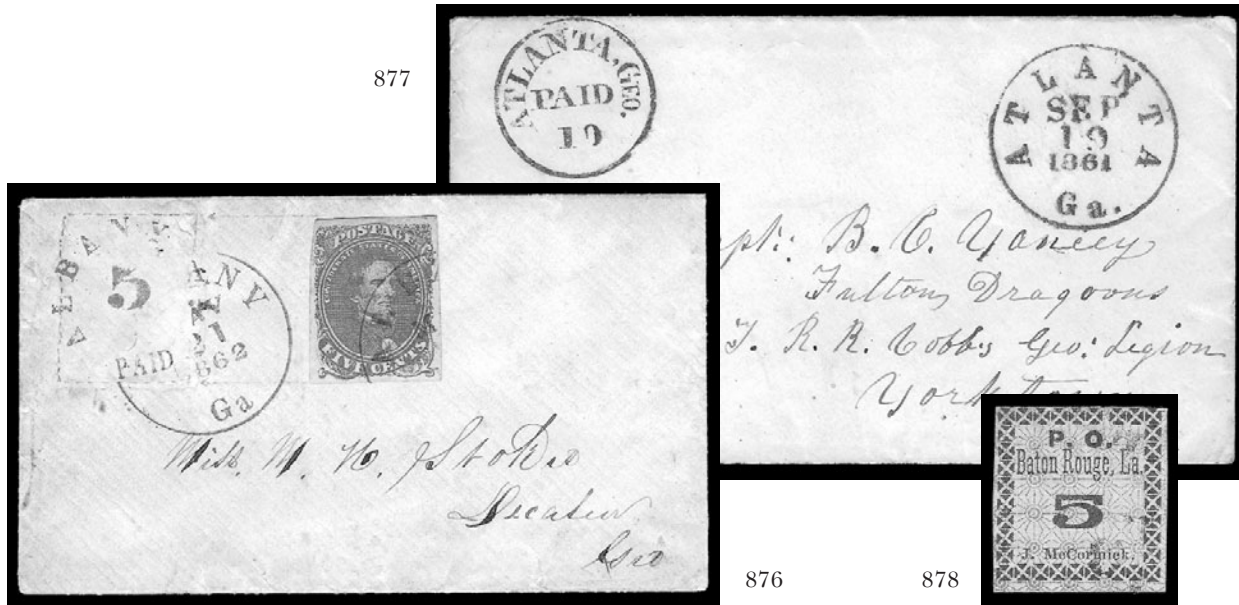 877
ATLANTA, GEO.
PAID
19
ATLANTA
SEP
19
1861
Ga.
pt: B. C. Yancey
Fulton Dragoons
T. R. R. Cobbs Geo: Legion
York
ALBANY
5
PAID
ANY
21
862
Ga
POSTAGE
FIVE CENTS
Miss. M. H. Stokes
Decatur
Geo
P. O.
Baton Rouge, La.
5
J. McCormick.
876
878